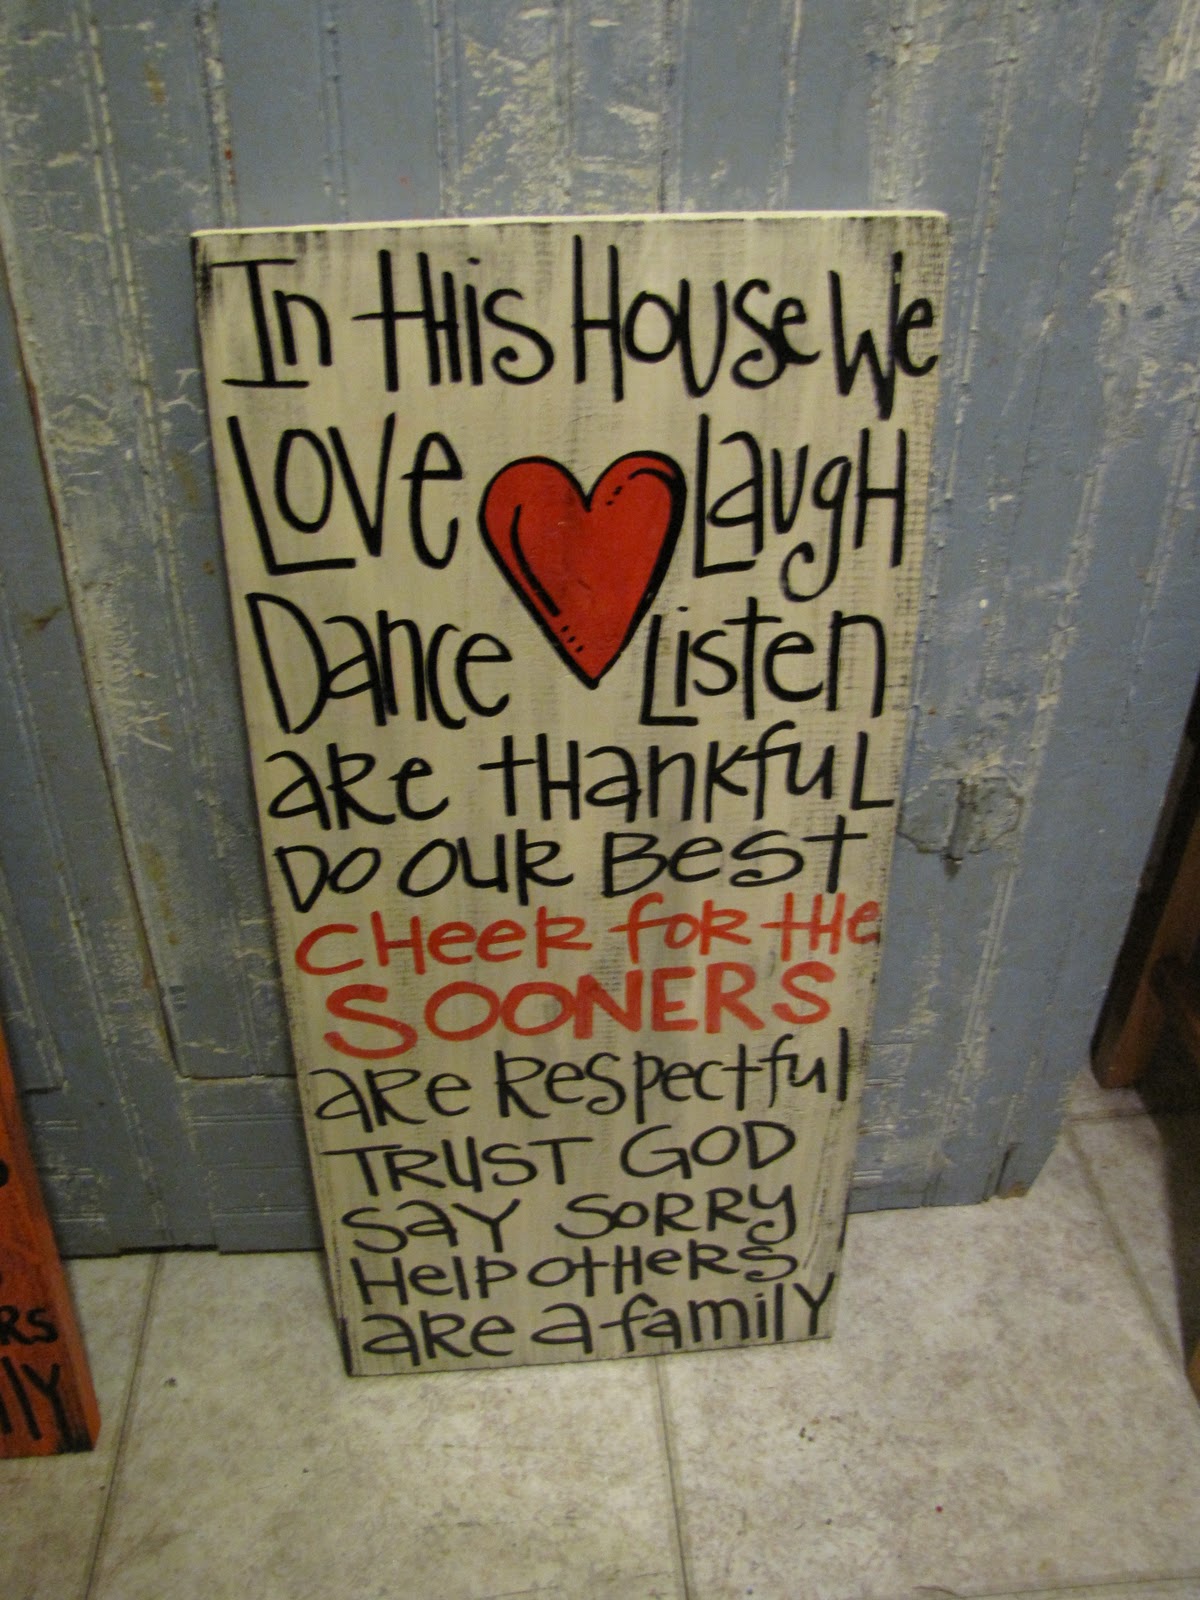 In THis House We
Love Laugh
Dance Listen
are THankful
Do our Best
CHeer for the
SOONERS
are Respectful
TRUST GOD
Say Sorry
Help others
are a family
RS
ily